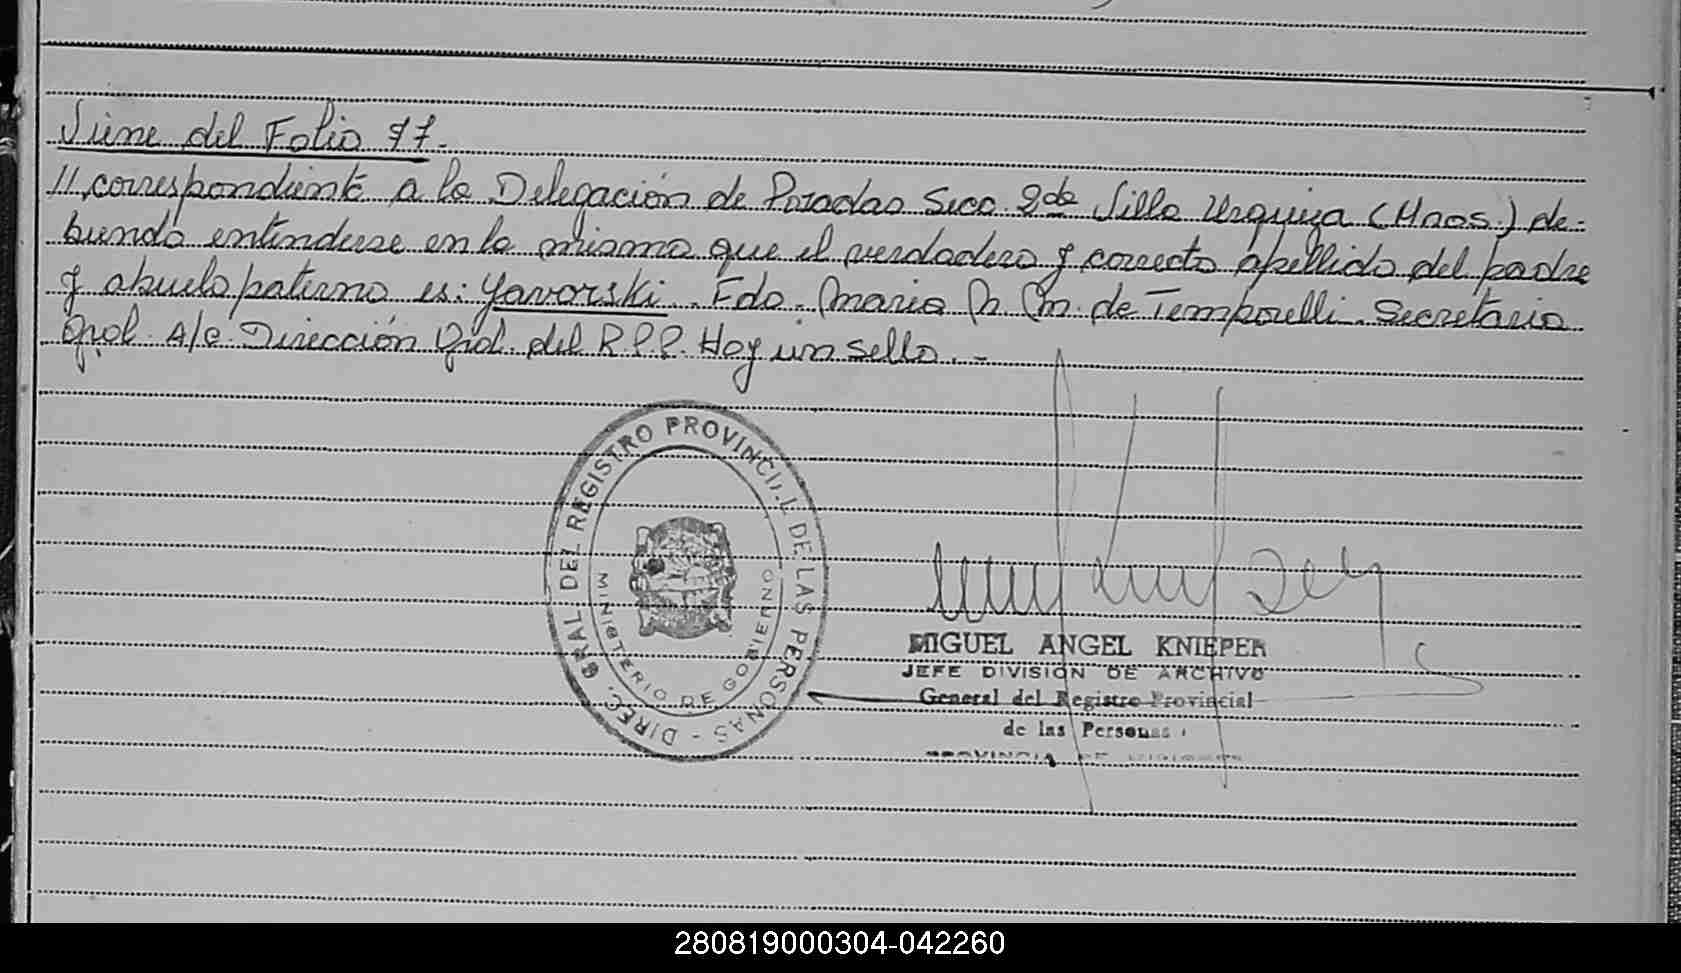 Viene del Folio 97.
// correspondiente a la Delegación de Posadas Secc. 2da Villa Urquiza (Mnes.) de-
biendo entenderse en la misma que el verdadero y correcto apellido del padre
y abuelo paterno es: Yavorski. Fdo. Maria M. de Temporelli. Secretaria
Gral. A/C. Dirección Gral. del R.P.P. Hay un sello. -
DIREC. GRAL DEL REGISTRO PROVINCIAL DE LAS PERSONAS -
MINISTERIO DE GOBIERNO
MIGUEL ANGEL KNIEPER
JEFE DIVISION DE ARCHIVO
General del Registro Provincial
de las Personas
PROVINCIA DE MISIONES
280819000304-042260